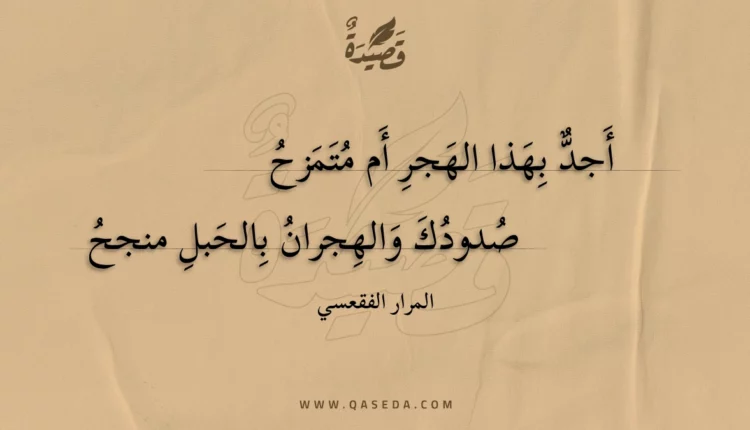 قَصِيْدَةٌ
أَجدٌّ بِهَذا الهَجرِ أَم مُتَمَزحُ
صُدودُكَ وَالهِجرانُ بِالحَبلِ منجحُ
المرار الفقعسي
WWW.QASEDA.COM